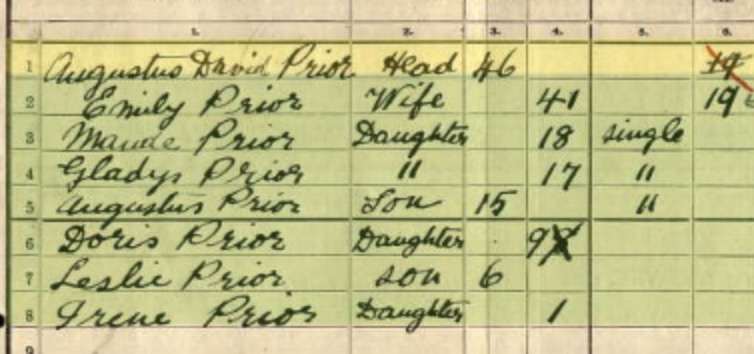 1. 2. 3. 4. 5. 6.
1 Augustus David Prior Head 46 19
2 Emily Prior Wife 41 19
3 Maude Prior Daughter 18 single
4 Gladys Prior " 17 "
5 Augustus Prior Son 15 "
6 Doris Prior Daughter 9
7 Leslie Prior son 6
8 Irene Prior Daughter 1
9